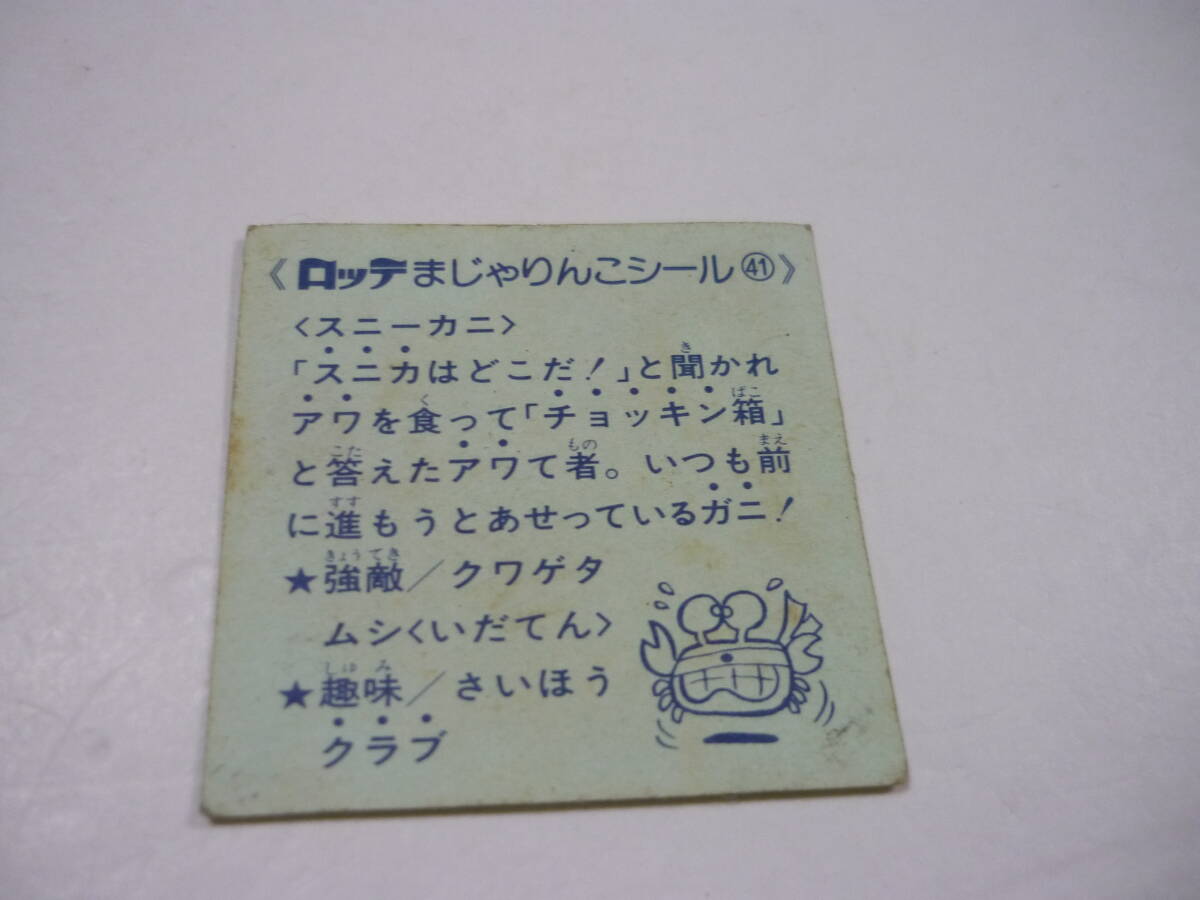 《ロッテまじゃりんこシール㊶》
〈スニーカニ〉
「スニカはどこだ！」と聞かれ
アワを食って「チョッキン箱」
と答えたアワて者。いつも前
に進もうとあせっているガニ！
★強敵／クワゲタ
ムシ〈いだてん〉
★趣味／さいほう
クラブ